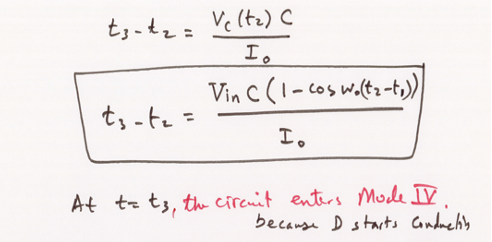 t₃-t₂ = Vc(t₂) C / I₀
t₃-t₂ = Vin C (1-cos w₀(t₂-t₁)) / I₀
At t=t₃, the circuit enters Mode IV.
because D starts Conducting